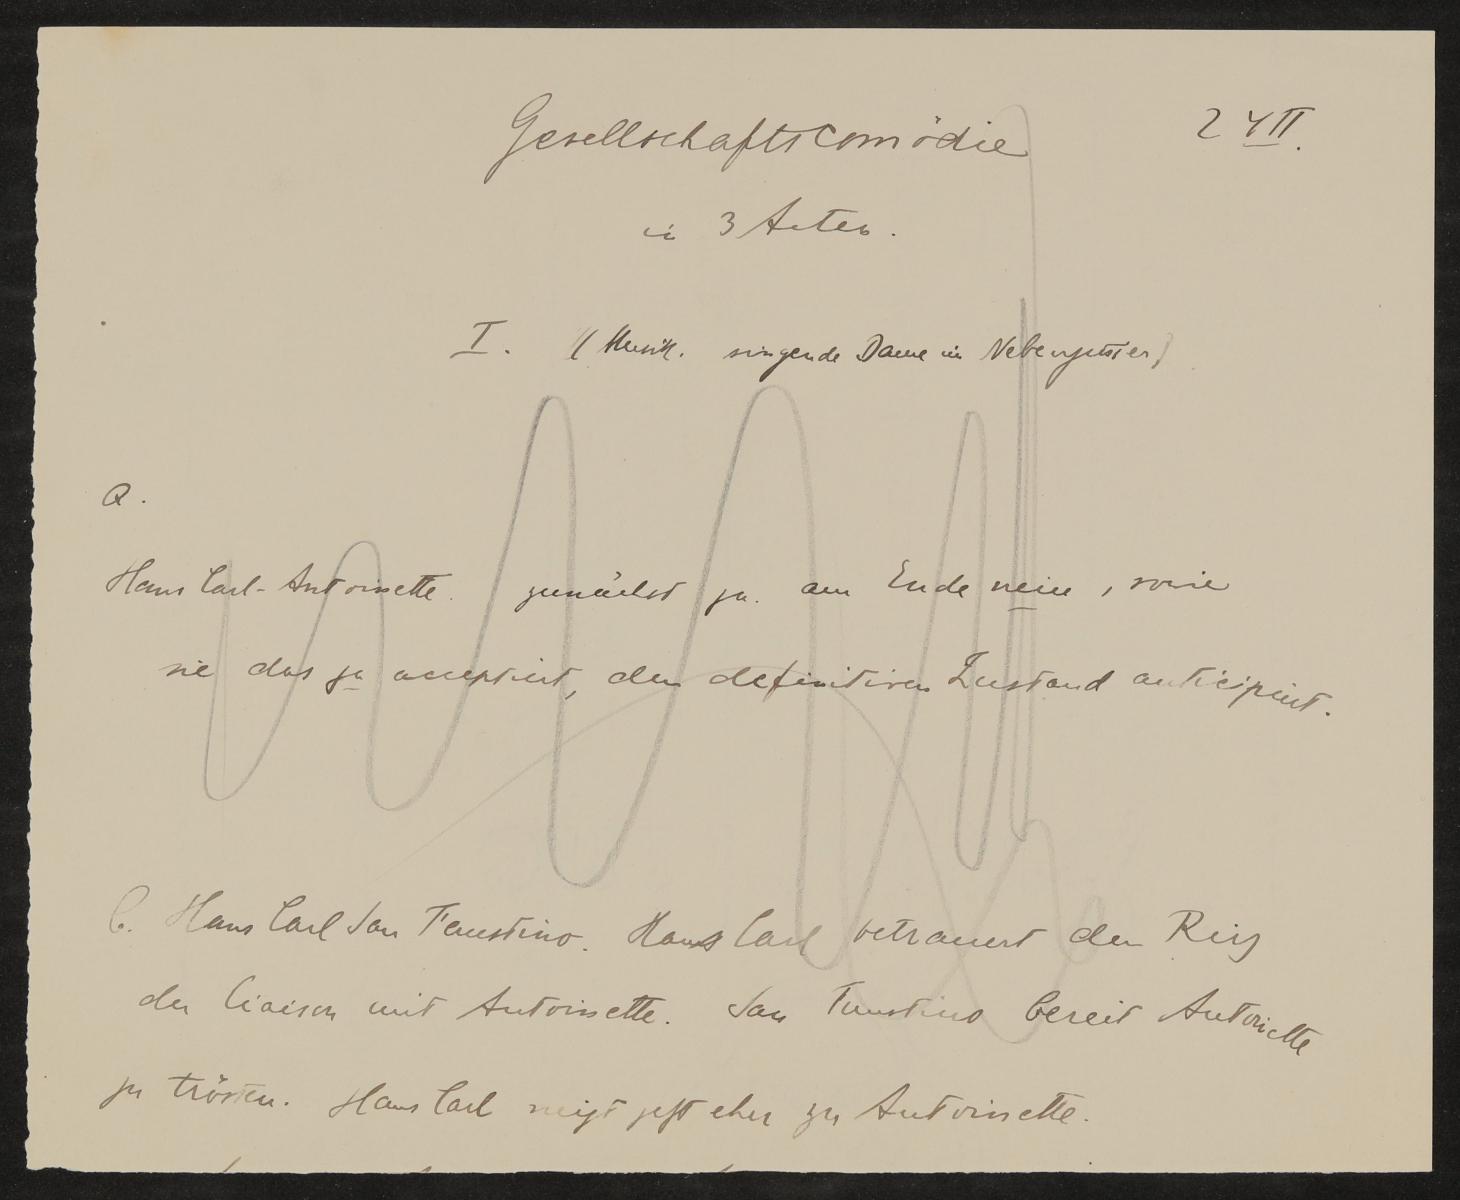 Gesellschaftscomödie
2 4 II.
in 3 Acten.
I. (Musik. singende Dame im Nebenzimmer)
a.
Hans Carl – Antoinette. zunächst ja. am Ende nein, sowie
sie das ja acceptiert, den definitiven Zustand anticipiert.
b. Hans Carl San Faustino. Hans Carl betrauert den
der Liaison mit Antoinette. San Faustino bereit Antoinette
zu trösten. Hans Carl neigt jetzt eher zu Antoinette.